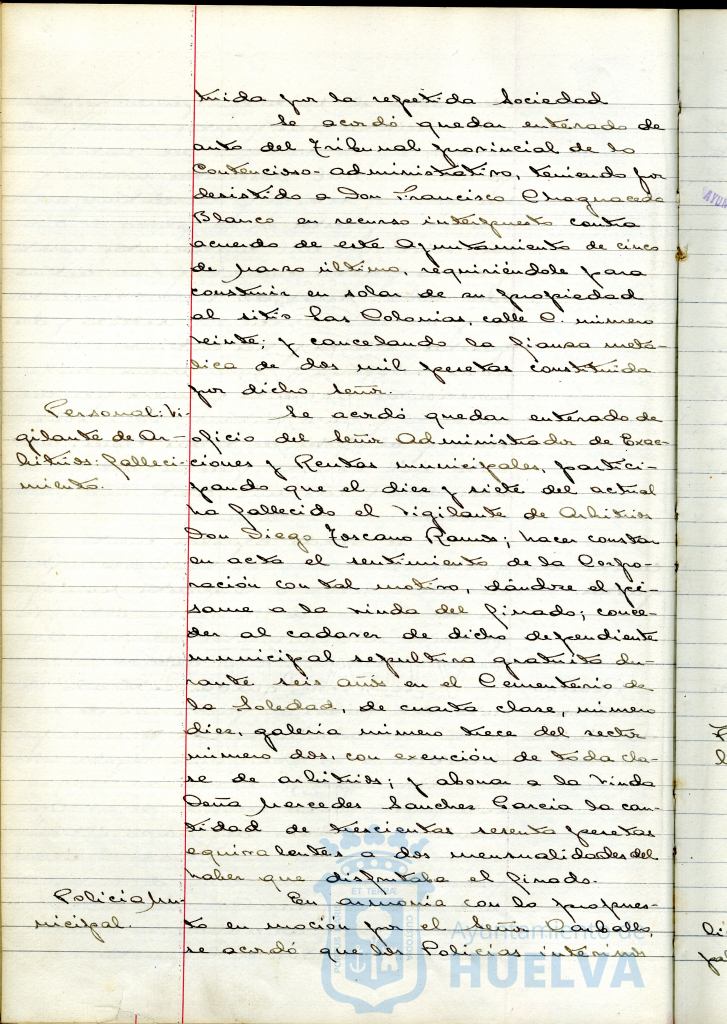 tuida por la repetida Sociedad
Se acordó quedar enterado de
auto del Tribunal provincial de lo
Contencioso-administrativo, teniendo por
desistido a Don Francisco Chaguaceda
Blanco en recurso interpuesto contra
acuerdo de este Ayuntamiento de cinco
de Marzo último, requiriéndole para
construir en solar de su propiedad
al sitio Las Colonias, calle C. número
veinte; y cancelando la fianza metá-
lica de dos mil pesetas constituida
por dicho Señor.
Personal: Vi-
gilante de Ar-
bitrios: falleci-
miento.
Se acordó quedar enterado de
oficio del Señor Administrador de Exac-
ciones y Rentas municipales, partici-
pando que el diez y siete del actual
ha fallecido el Vigilante de Arbitrios
Don Diego Toscano Ramos; hacer constar
en acta el sentimiento de la Corpo-
ración con tal motivo, dándose el pé-
same a la viuda del finado; conce-
der al cadaver de dicho dependiente
municipal sepultura gratuita du-
rante seis años en el Cementerio de
la Soledad, de cuarta clase, número
diez, galería número trece del sector
número dos, con exención de toda cla-
se de arbitrios; y abonar a la viuda
Doña Mercedes Sanchez Garcia la can-
tidad de trescientas sesenta pesetas
equivalentes a dos mensualidades del
haber que disfrutaba el finado.
Policía Mu-
nicipal.
En armonía con lo propues-
to en moción por el Señor Carballo,
se acordó que los Policías interinos
Ayuntamiento de
HUELVA
ET TERRÆ
CUSTODIA
AYUN